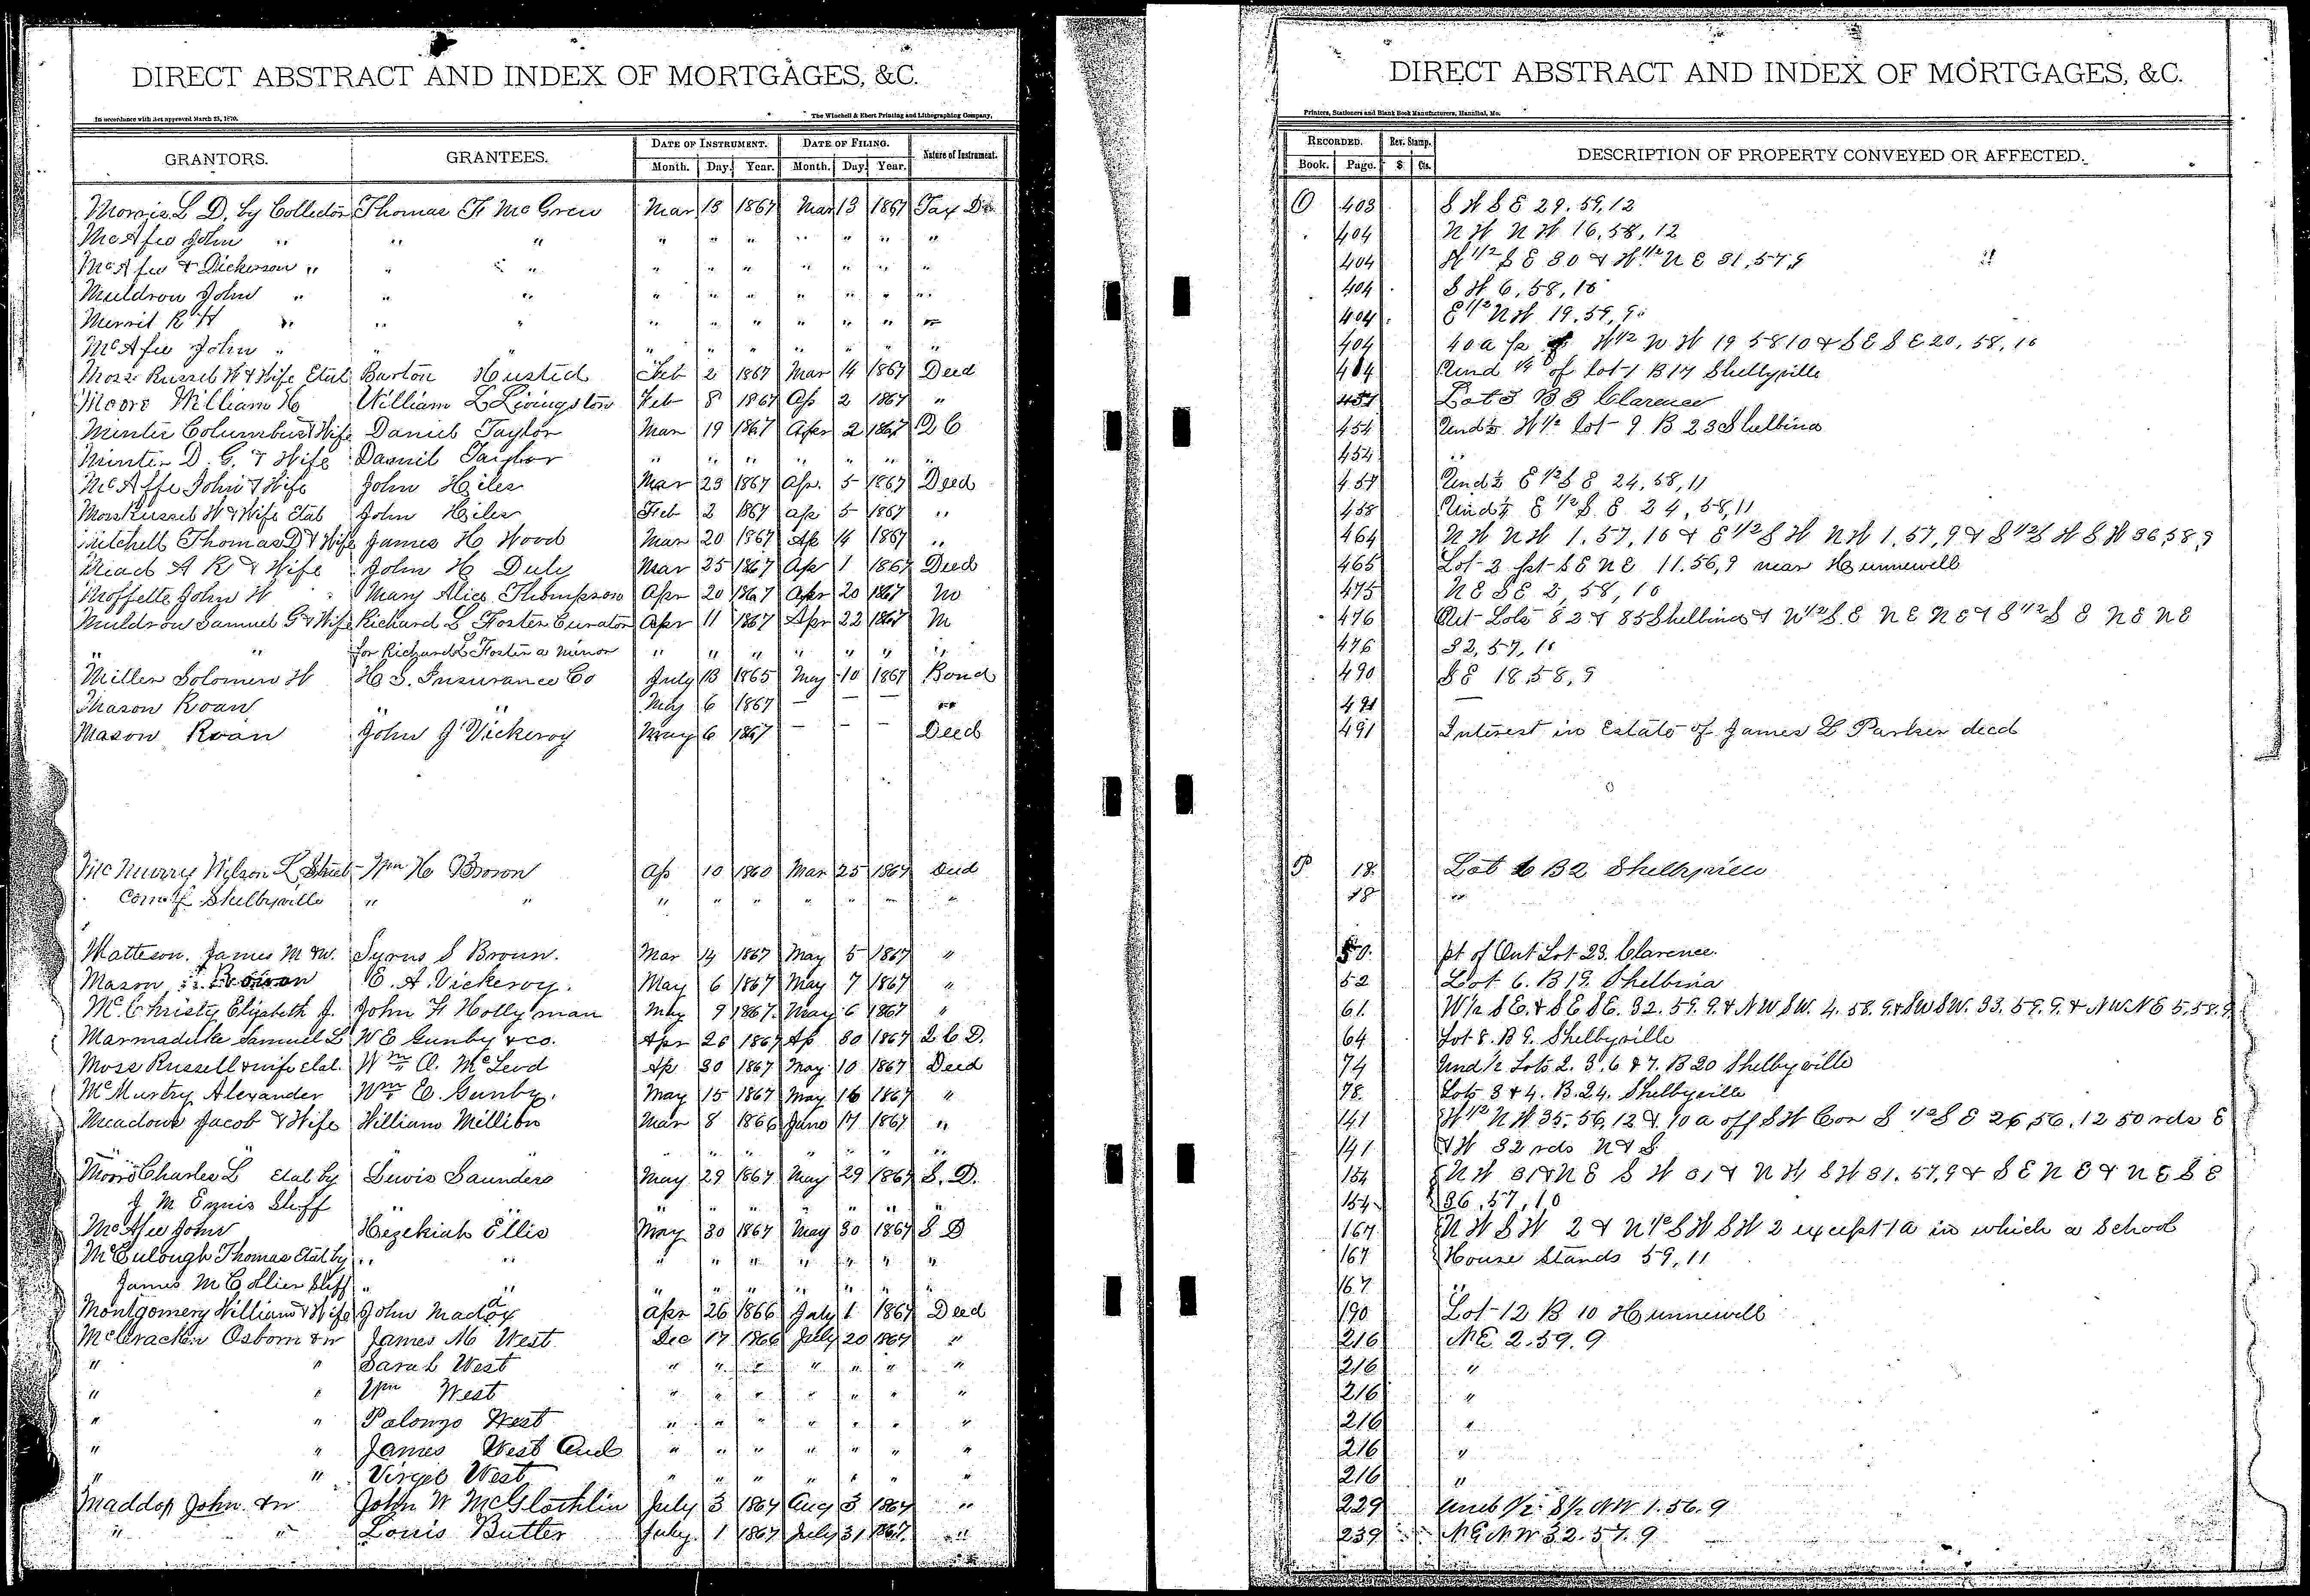 DIRECT ABSTRACT AND INDEX OF MORTGAGES, &C.
In accordance with Act approved March 23, 1870.
The Winchell & Ebert Printing and Lithographing Company,
GRANTORS. GRANTEES. DATE OF INSTRUMENT. DATE OF FILING. Nature of Instrument.
Month. Day. Year. Month. Day. Year.
Morris L D, by Collector Thomas F McGrew Mar 13 1867 Mar 13 1867 Tax D
McAfee John " " " " " " " " " "
McAfee & Dickerson " " " " " " " " " "
Muldrow John " " " " " " " " " "
Merrit R H " " " " " " " " "
McAfee John " " " " " " " " " "
Moss Russel W & Wife Etal Barton Husted Feb 2 1867 Mar 14 1867 Deed
Moore William H William L Livingston Feb 8 1867 Ap 2 1867 "
Minter Columbus & Wife Daniel Taylor Mar 19 1867 Apr 2 1867 Q C
Minter D. G. & Wife Daniel Taylor " " " " " " "
McAffe John & Wife John Hiles Mar 23 1867 Ap. 5 1867 Deed
Moss Russel W & Wife Etal John Hiles Feb 2 1867 Ap 5 1867 "
Mitchell Thomas D & Wife James H Wood Mar 20 1867 Ap 14 1867 "
Mead A R & Wife John H Duly Mar 25 1867 Apr 1 1867 Deed
Moffette John W Mary Alice Thompson Apr 20 1867 Apr 20 1867 M
Muldrow Samuel G & Wife Richard L Foster Curator Apr 11 1867 Apr 22 1867 M
" " for Richard L Foster a minor " " " " " " "
Miller Solomon W H S. Insurance Co July 13 1865 May 10 1867 Bond
Mason Roan " " May 6 1867 — — — "
Mason Roan John J Vickeroy May 6 1867 — — — Deed
McMurry Wilson L Wm H Brown Ap 10 1860 Mar 25 1867 Deed
Com of Shelbyville " " " " " " " " "
Matteson. James M & W. Syrus S Broun. Mar 14 1867 May 5 1867 "
Mason E. A. Vickeroy. May 6 1867 May 7 1867 "
McChristy Elizabeth J. John F Hollyman May 9 1867. May 6 1867 "
Marmaduke Samuel L W E Gunby & co. Apr 26 1867 Ap 30 1867 Q C D.
Moss Russell & wife etal. Wm A. McLeod Ap 30 1867 May 10 1867 Deed
McMurtry Alexander Wm E. Gunby. May 15 1867 May 16 1867 "
Meadows Jacob & Wife William Million Mar 8 1866 June 17 1867 "
Morris Charles L Etal by Lewis Saunders May 29 1867 May 29 1867 S. D.
J M Ennis Shff
McAfee John Hezekiah Ellis May 30 1867 May 30 1867 S D
McCulough Thomas Etal by " " " " " " " " "
James M Collier Shff " " " " " " " " "
Montgomery William & Wife John Maddox Apr 26 1866 July 1 1867 Deed
McCracken Osborn & w James M West Dec 17 1866 July 20 1867 "
" " Sarah West " " " " " " "
" " Wm West " " " " " " "
" " Palonzo West " " " " " " "
" " James West And " " " " " " "
" " Virgil West " " " " " " "
Maddox John & w John W McGlothlin July 3 1867 Aug 3 1867 "
" " Louis Butler July 1 1867 July 31 1867. "
DIRECT ABSTRACT AND INDEX OF MORTGAGES, &C.
Printers, Stationers and Blank Book Manufacturers, Hannibal, Mo.
RECORDED. Rev. Stamp. DESCRIPTION OF PROPERTY CONVEYED OR AFFECTED.
Book. Page. $ Cts.
O 403 S W S E 29. 59, 12
404 N W N W 16, 58, 12
404 W 1/2 S E 30 & W 1/2 N E 31, 57, 9
404 S W 6, 58, 10
404 E 1/2 N W 19. 59, 9.
404 40 a W 1/2 N W 19 58 10 & S E S E 20, 58, 10
414 Und 1/4 of Lot 1 B 17 Shelbyville
451 Lot 3 B 8 Clarence
454 Und 1/2 W 1/2 Lot 9 B 23 Shelbina
454 "
457 Und 1/2 E 1/2 S E 24, 58, 11
458 Und 1/2 E 1/2 S. E. 24, 58, 11
464 N W N W 1. 57, 10 & E 1/2 S W N W 1, 57, 9 & S 1/2 S W S W 36, 58, 9
465 Lot 2 pt S E N E 11. 56, 9 near Hunnewell
475 N E S E 2, 58, 10
476 Out Lots 82 & 85 Shelbina & W 1/2 S. E N E N E & S 1/2 S E N E N E
476 32, 57, 10
490 S E 18, 58, 9
491 —
491 Interest in Estate of James L Parker decd
P 18. Lot 6 B 2 Shelbyville
18 "
50. pt of Out Lot 23. Clarence.
52 Lot 6. B 19. Shelbina
61. W 1/2 S E. & S E S E. 32. 59. 9. & N W S W. 4. 58. 9. & S W S W. 33. 59. 9. & N W N E 5. 58. 9.
64 Lot 8. B 9. Shelbyville
74 Und 1/2 Lots 2. 3. 6 & 7. B 20 Shelbyville
78. Lots 3 & 4. B. 24. Shelbyville
141 W 1/2 N W 35. 56, 12 & 10 a off S W Cor S 1/2 S E 26, 56, 12 50 rds E
141 & W 32 rds N & S
154 N W 31 & N E S W 31 & N W S W 31. 57, 9 & S E N E & N E S E
154 36, 57, 10
167 N W S W 2 & N 1/2 S W S W 2 except 1 a in which a School
167 House Stands 59, 11
167 "
190 Lot 12 B 10 Hunnewell
216 N E. 2. 59. 9
216 "
216 "
216 "
216 "
216 "
229 Und 1/2 S 1/2 N W 1. 56. 9
239 N E N W 32. 57. 9